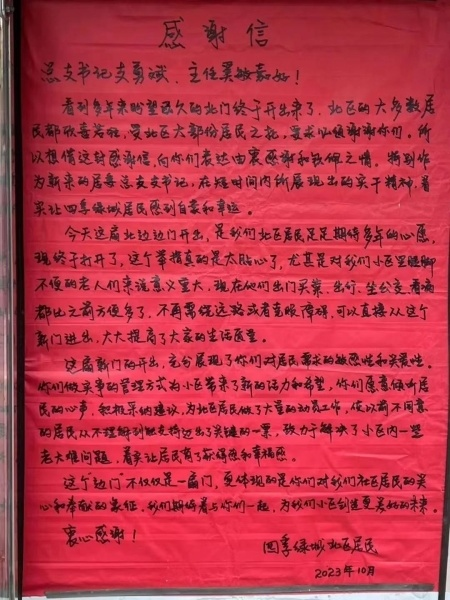 感谢信
总支书记支勇斌、主任吴敏嘉好！
看到多年来盼望已久的北门终于开出来了，北区的大多数居
民都欣喜若狂，受北区大部份居民之托，要求必须谢谢你们。所
以想借这封感谢信，向你们表达由衷感谢和致敬之情，特别作
为新来的居委总支支书记，在短时间内所展现出的实干精神，着
实让四季绿城居民感到自豪和幸运。
今天这扇北边边门开出，是我们北区居民足足期待多年的心愿，
现终于打开了，这个举措真的是太贴心了，尤其是对我们小区里腿脚
不便的老人们来说意义重大，现在他们出门买菜、出行、坐公交看病
都比之前方便多了，不再需绕远路或者克服障碍，可以直接从这个
新门进出，大大提高了大家的生活质量。
这扇新门的开出，充分展现了你们对居民需求的敏感性和关爱性。
你们做实事的管理方式为小区带来了新的活力和希望，你们愿意倾听居
民的心声，积极采纳建议，为北区居民做了大量的动员工作，使以前不同意
的居民从不理解到能支持迈出了关键的一票，致力于解决了小区内一些
老大难问题，着实让居民有了获得感和幸福感。
这个边门"不仅仅是一扇门，更体现的是你们对我们社区居民的关
心和奉献的象征，我们期待着与你们一起，为我们小区创造更美好的未来。
衷心感谢！
四季绿城北区居民
2023年10月